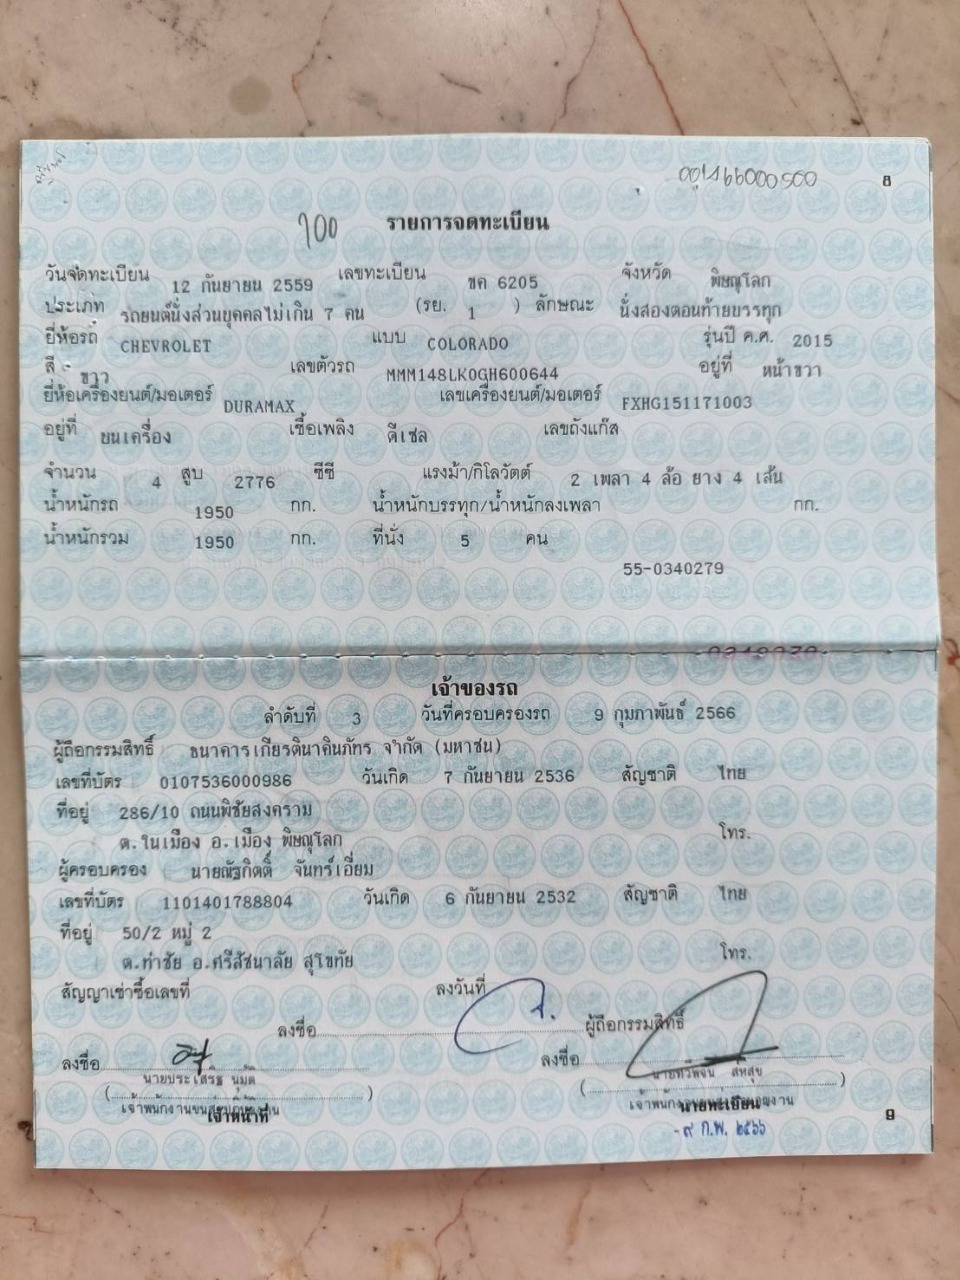 001166000500 8
700 รายการจดทะเบียน
วันจดทะเบียน 12 กันยายน 2559 เลขทะเบียน ขค 6205 จังหวัด พิษณุโลก
ประเภท รถยนต์นั่งส่วนบุคคลไม่เกิน 7 คน (รย. 1 ) ลักษณะ นั่งสองตอนท้ายบรรทุก
ยี่ห้อรถ CHEVROLET แบบ COLORADO รุ่นปี ค.ศ. 2015
สี ขาว เลขตัวรถ MMM148LK0GH600644 อยู่ที่ หน้าขวา
ยี่ห้อเครื่องยนต์/มอเตอร์ DURAMAX เลขเครื่องยนต์/มอเตอร์ FXHG151171003
อยู่ที่ บนเครื่อง เชื้อเพลิง ดีเซล เลขถังแก๊ส
จำนวน 4 สูบ 2776 ซีซี แรงม้า/กิโลวัตต์ 2 เพลา 4 ล้อ ยาง 4 เส้น
น้ำหนักรถ 1950 กก. น้ำหนักบรรทุก/น้ำหนักลงเพลา กก.
น้ำหนักรวม 1950 กก. ที่นั่ง 5 คน
55-0340279
เจ้าของรถ
ลำดับที่ 3 วันที่ครอบครองรถ 9 กุมภาพันธ์ 2566
ผู้ถือกรรมสิทธิ์ ธนาคารเกียรตินาคินภัทร จำกัด (มหาชน)
เลขที่บัตร 0107536000986 วันเกิด 7 กันยายน 2536 สัญชาติ ไทย
ที่อยู่ 286/10 ถนนพิชัยสงคราม
ต.ในเมือง อ.เมือง พิษณุโลก โทร.
ผู้ครอบครอง นายณัฐกิตติ์ จันทร์เอี่ยม
เลขที่บัตร 1101401788804 วันเกิด 6 กันยายน 2532 สัญชาติ ไทย
ที่อยู่ 50/2 หมู่ 2
ต.ท่าชัย อ.ศรีสัชนาลัย สุโขทัย โทร.
สัญญาเช่าซื้อเลขที่ ลงวันที่
ลงชื่อ ผู้ถือกรรมสิทธิ์
ลงชื่อ ลงชื่อ
นายประเสริฐ นุมัติ
( ) ( )
เจ้าหน้าที่ นายทะเบียน 9
- ๙ ก.พ. ๒๕๖๖